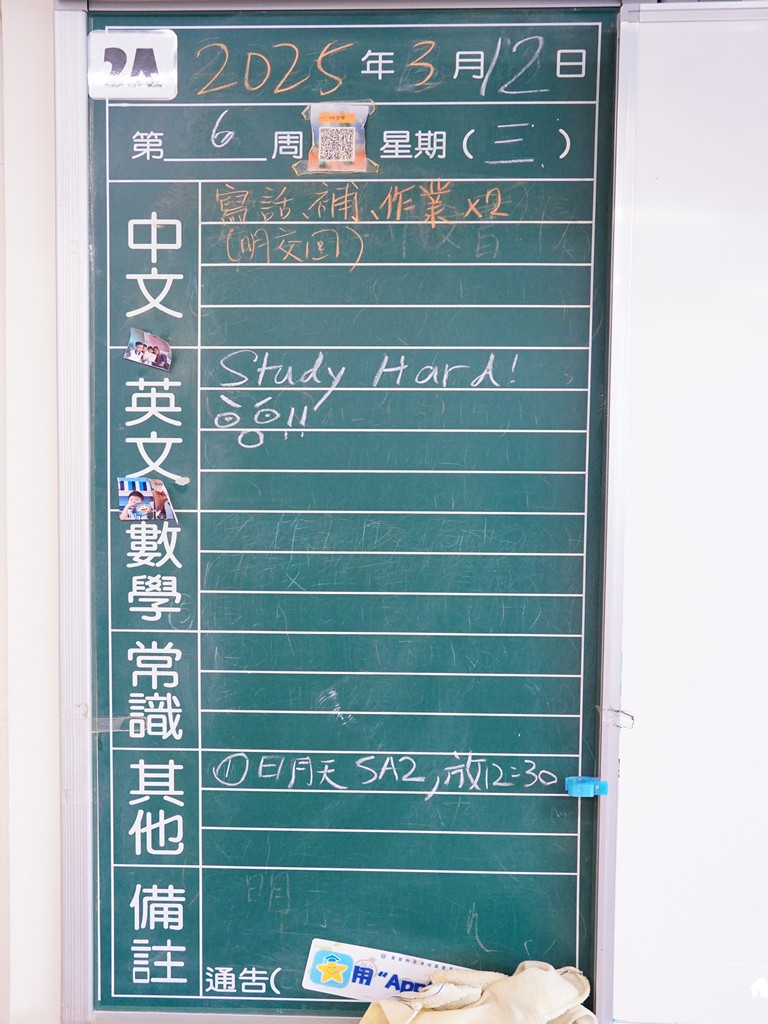 2A 2025年3月12日
第6周 星期(三)
中文
寫話、補、作業x2
(明交回)
英文
Study Hard!
數學
常識
其他
①日月天 SA2,放12:30
備註
通告(
用 "APP